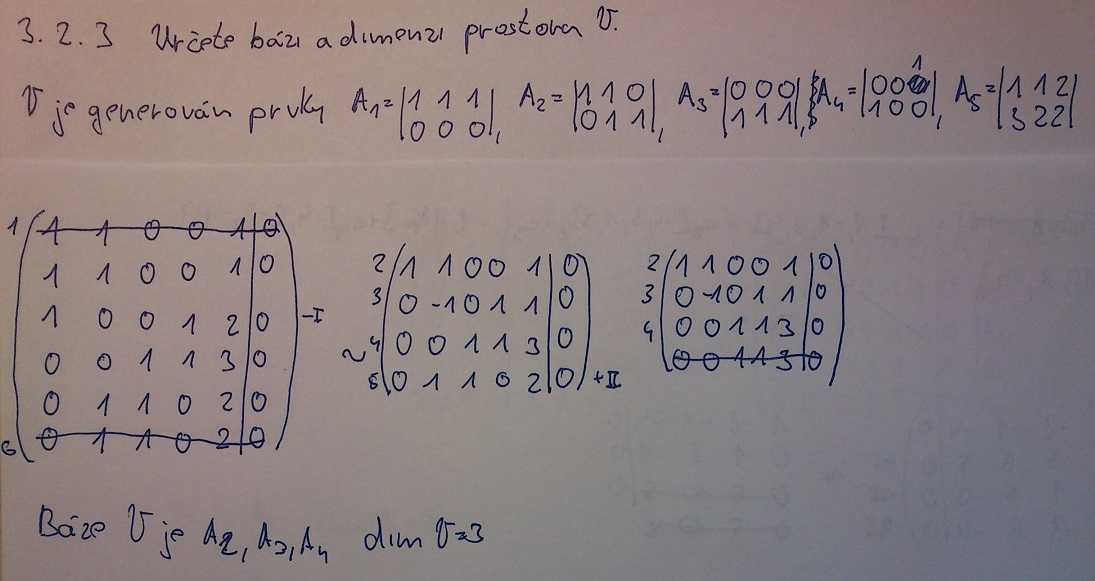 3.2.3 Určete bázi a dimenzi prostoru V.
V je generován prvky A1=|1 1 1|, A2=|1 1 0|, A3=|0 0 0|, A4=|0 0 1|, A5=|1 1 2|
|0 0 0| |0 1 1| |1 1 1| |1 0 0| |3 2 2|
1 (1 1 0 0 1|0)
(1 1 0 0 1|0)
(1 0 0 1 2|0) -I
(0 0 1 1 3|0)
(0 1 1 0 2|0)
6 (0 1 1 0 2|0)
~
2 (1 1 0 0 1|0)
3 (0 -1 0 1 1|0)
4 (0 0 1 1 3|0)
5 (0 1 1 0 2|0) +II
2 (1 1 0 0 1|0)
3 (0 -1 0 1 1|0)
4 (0 0 1 1 3|0)
(0 0 1 1 3|0)
Báze V je A2, A3, A4 dim V=3